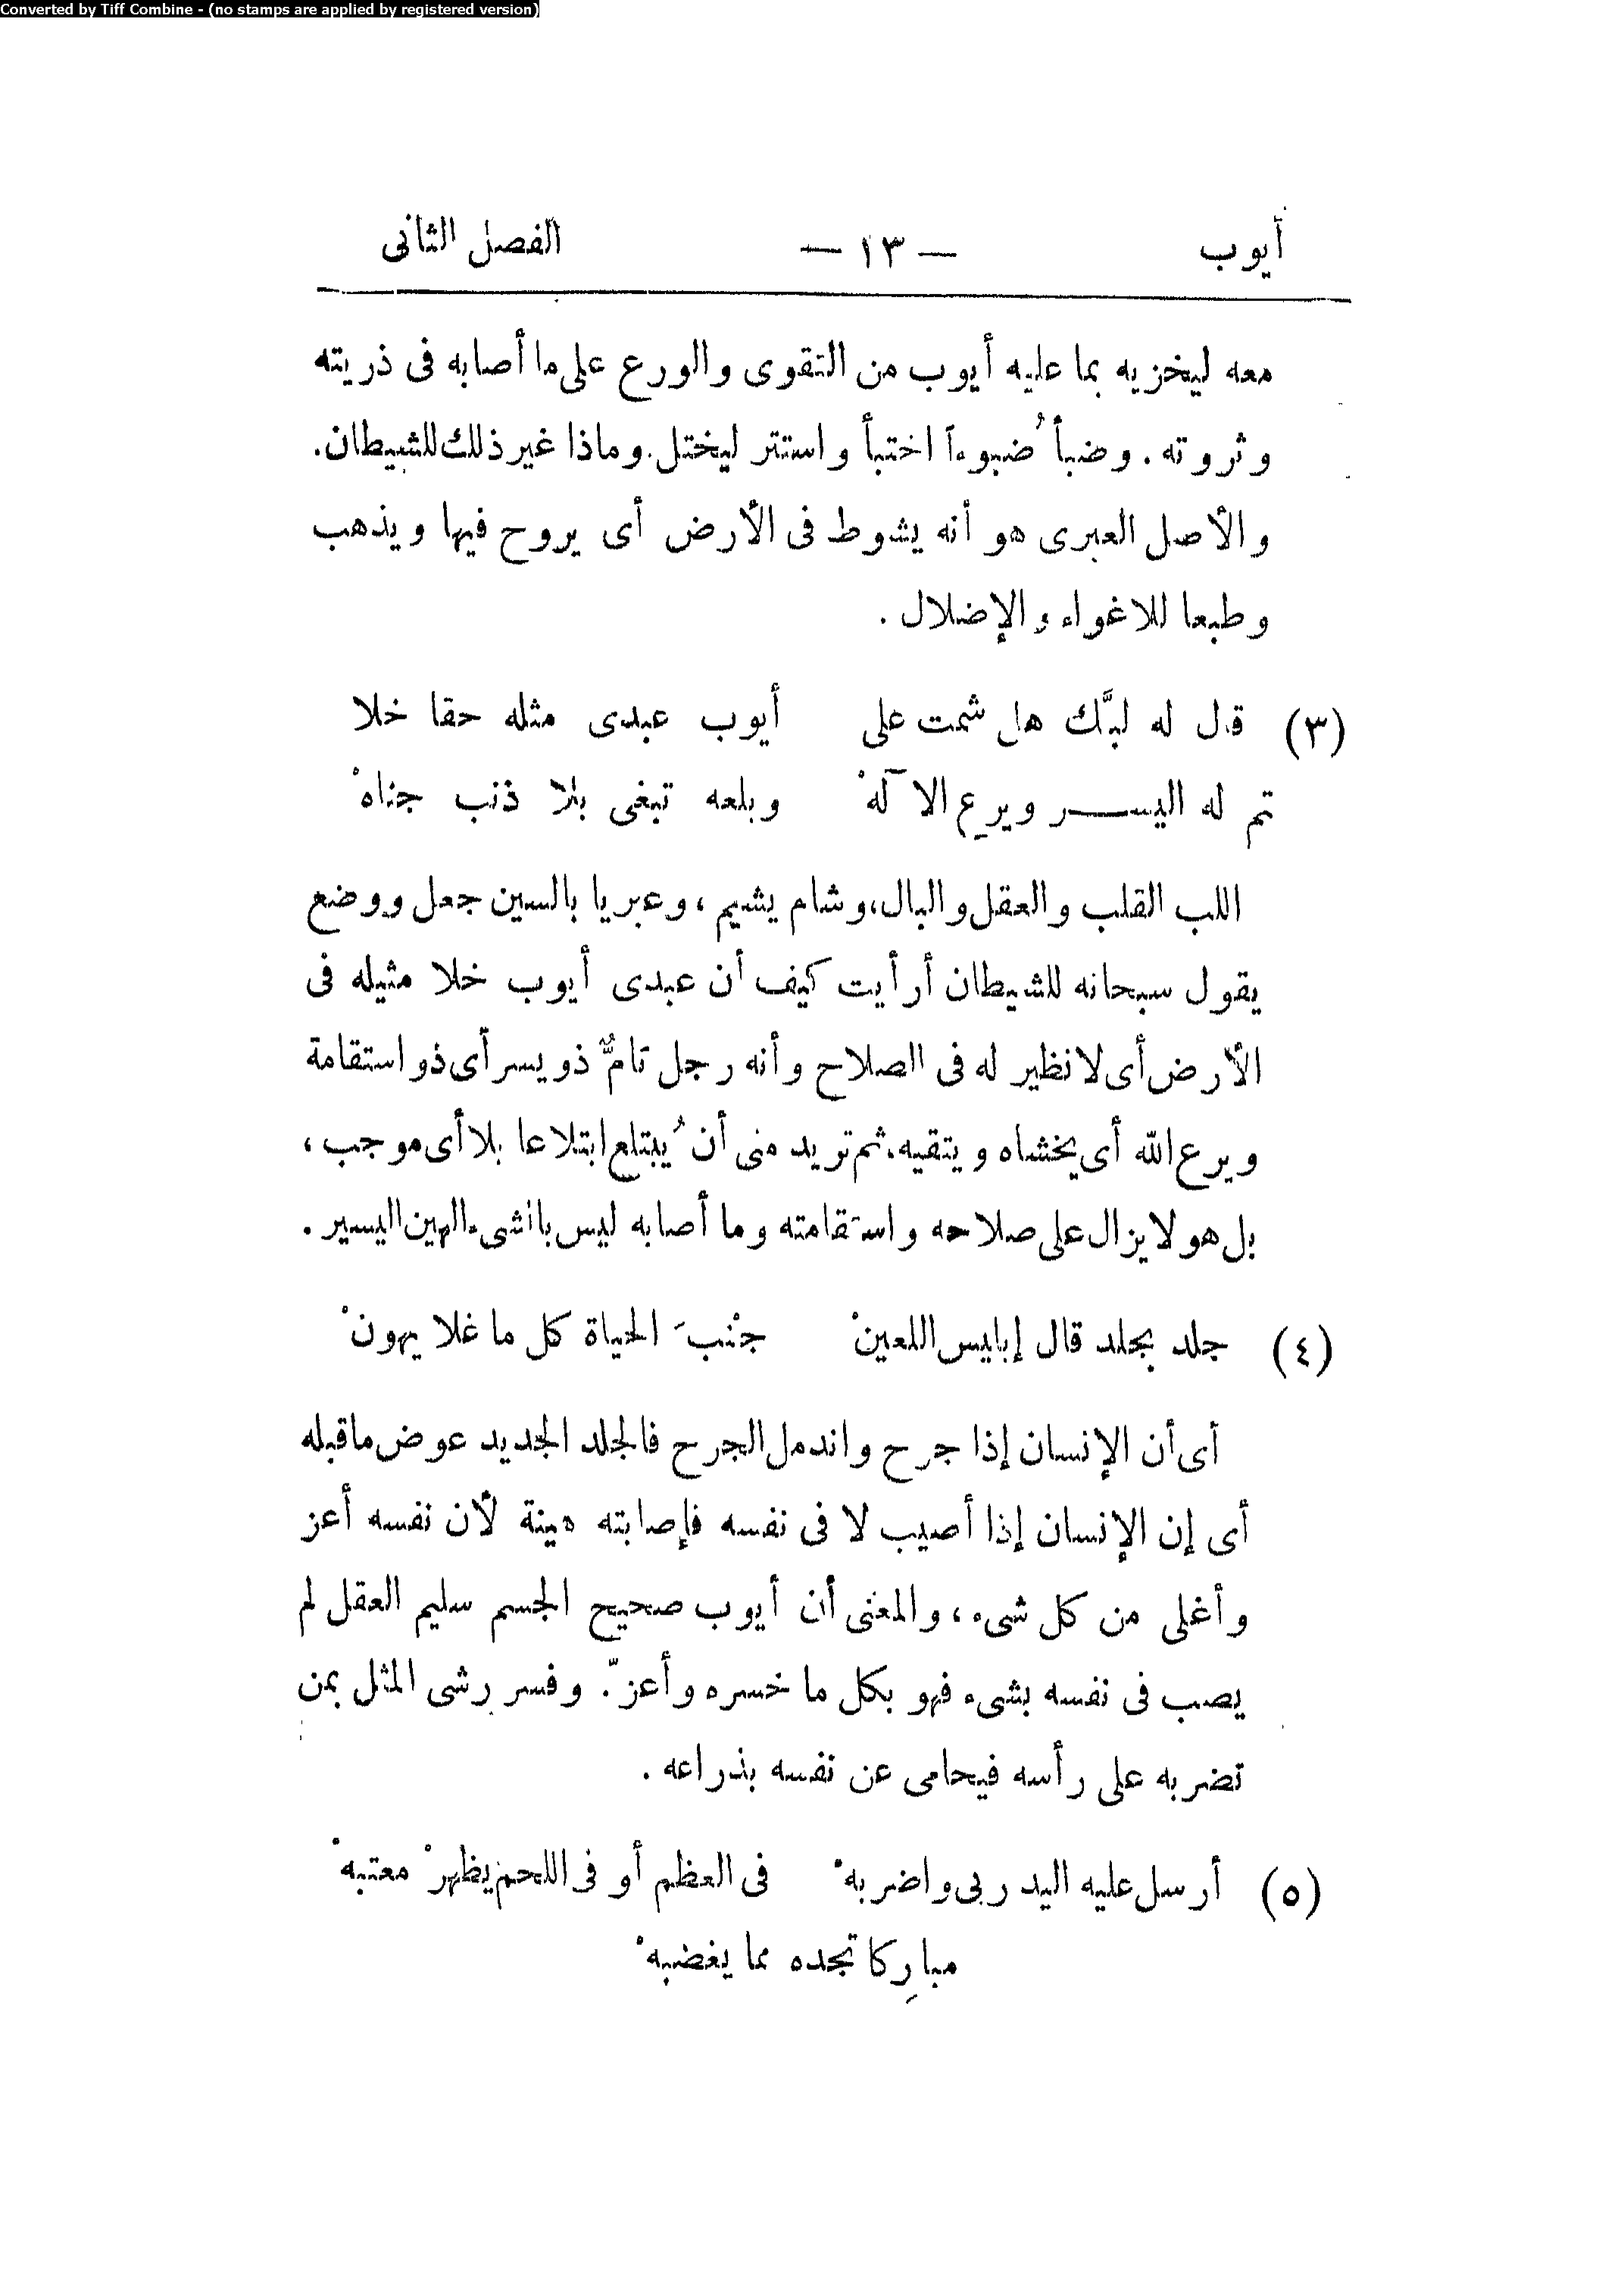 Converted by Tiff Combine - (no stamps are applied by registered version)
أيوب — ١٣ — الفصل الثانى
معه ليخزيه بما عليه أيوب من التقوى والورع على ما أصابه فى ذريته
وثروته . وضبأ ُضبوءاً اختبأ واستتر ليختل. وماذا غير ذلك للشيطان.
والأصل العبرى هو أنه يشوط فى الأرض أى يروح فيها ويذهب
وطبعا للاغواء والإضلال .
(٣) قال له لبَّك هل شمت على أيوب عبدى مثله حقا خلا
تم له اليســـر ويرع الآلهْ وبلعه تبغى بلا ذنب جناهْ
اللب القلب والعقل والبال، وشام يشيم ، وعبريا بالسين جعل ووضع
يقول سبحانه للشيطان أرأيت كيف أن عبدى أيوب خلا مثيله فى
الأرض أى لا نظير له فى الصلاح وأنه رجل تامٌّ ذو يسر أى ذو استقامة
ويرع الله أى يخشاه ويتقيه. ثم تريد منى أن ُيبتلع ابتلاعا بلا أى موجب ،
بل هو لا يزال على صلاحه واستقامته وما أصابه ليس بالشىء الهين اليسير .
(٤) جلد بجلد قال إبليس اللعينْ جنْبَ الحياة كل ما غلا يهونْ
أى أن الإنسان إذا جرح واندمل الجرح فالجلد الجديد عوض ما قبله
أى إن الإنسان إذا أصيب لا فى نفسه فإصابته هينة لأن نفسه أعز
وأغلى من كل شىء ، والمعنى أن أيوب صحيح الجسم سليم العقل لم
يصب فى نفسه بشىء فهو بكل ما خسره وأعزّ . وفسر رشى المثل بمن
تضربه على رأسه فيحامى عن نفسه بذراعه .
(٥) أرسل عليه اليد ربى واضربهْ فى العظم أو فى اللحم يظهرْ معتبهْ
مبارِكا تجده مما يغضبهْ